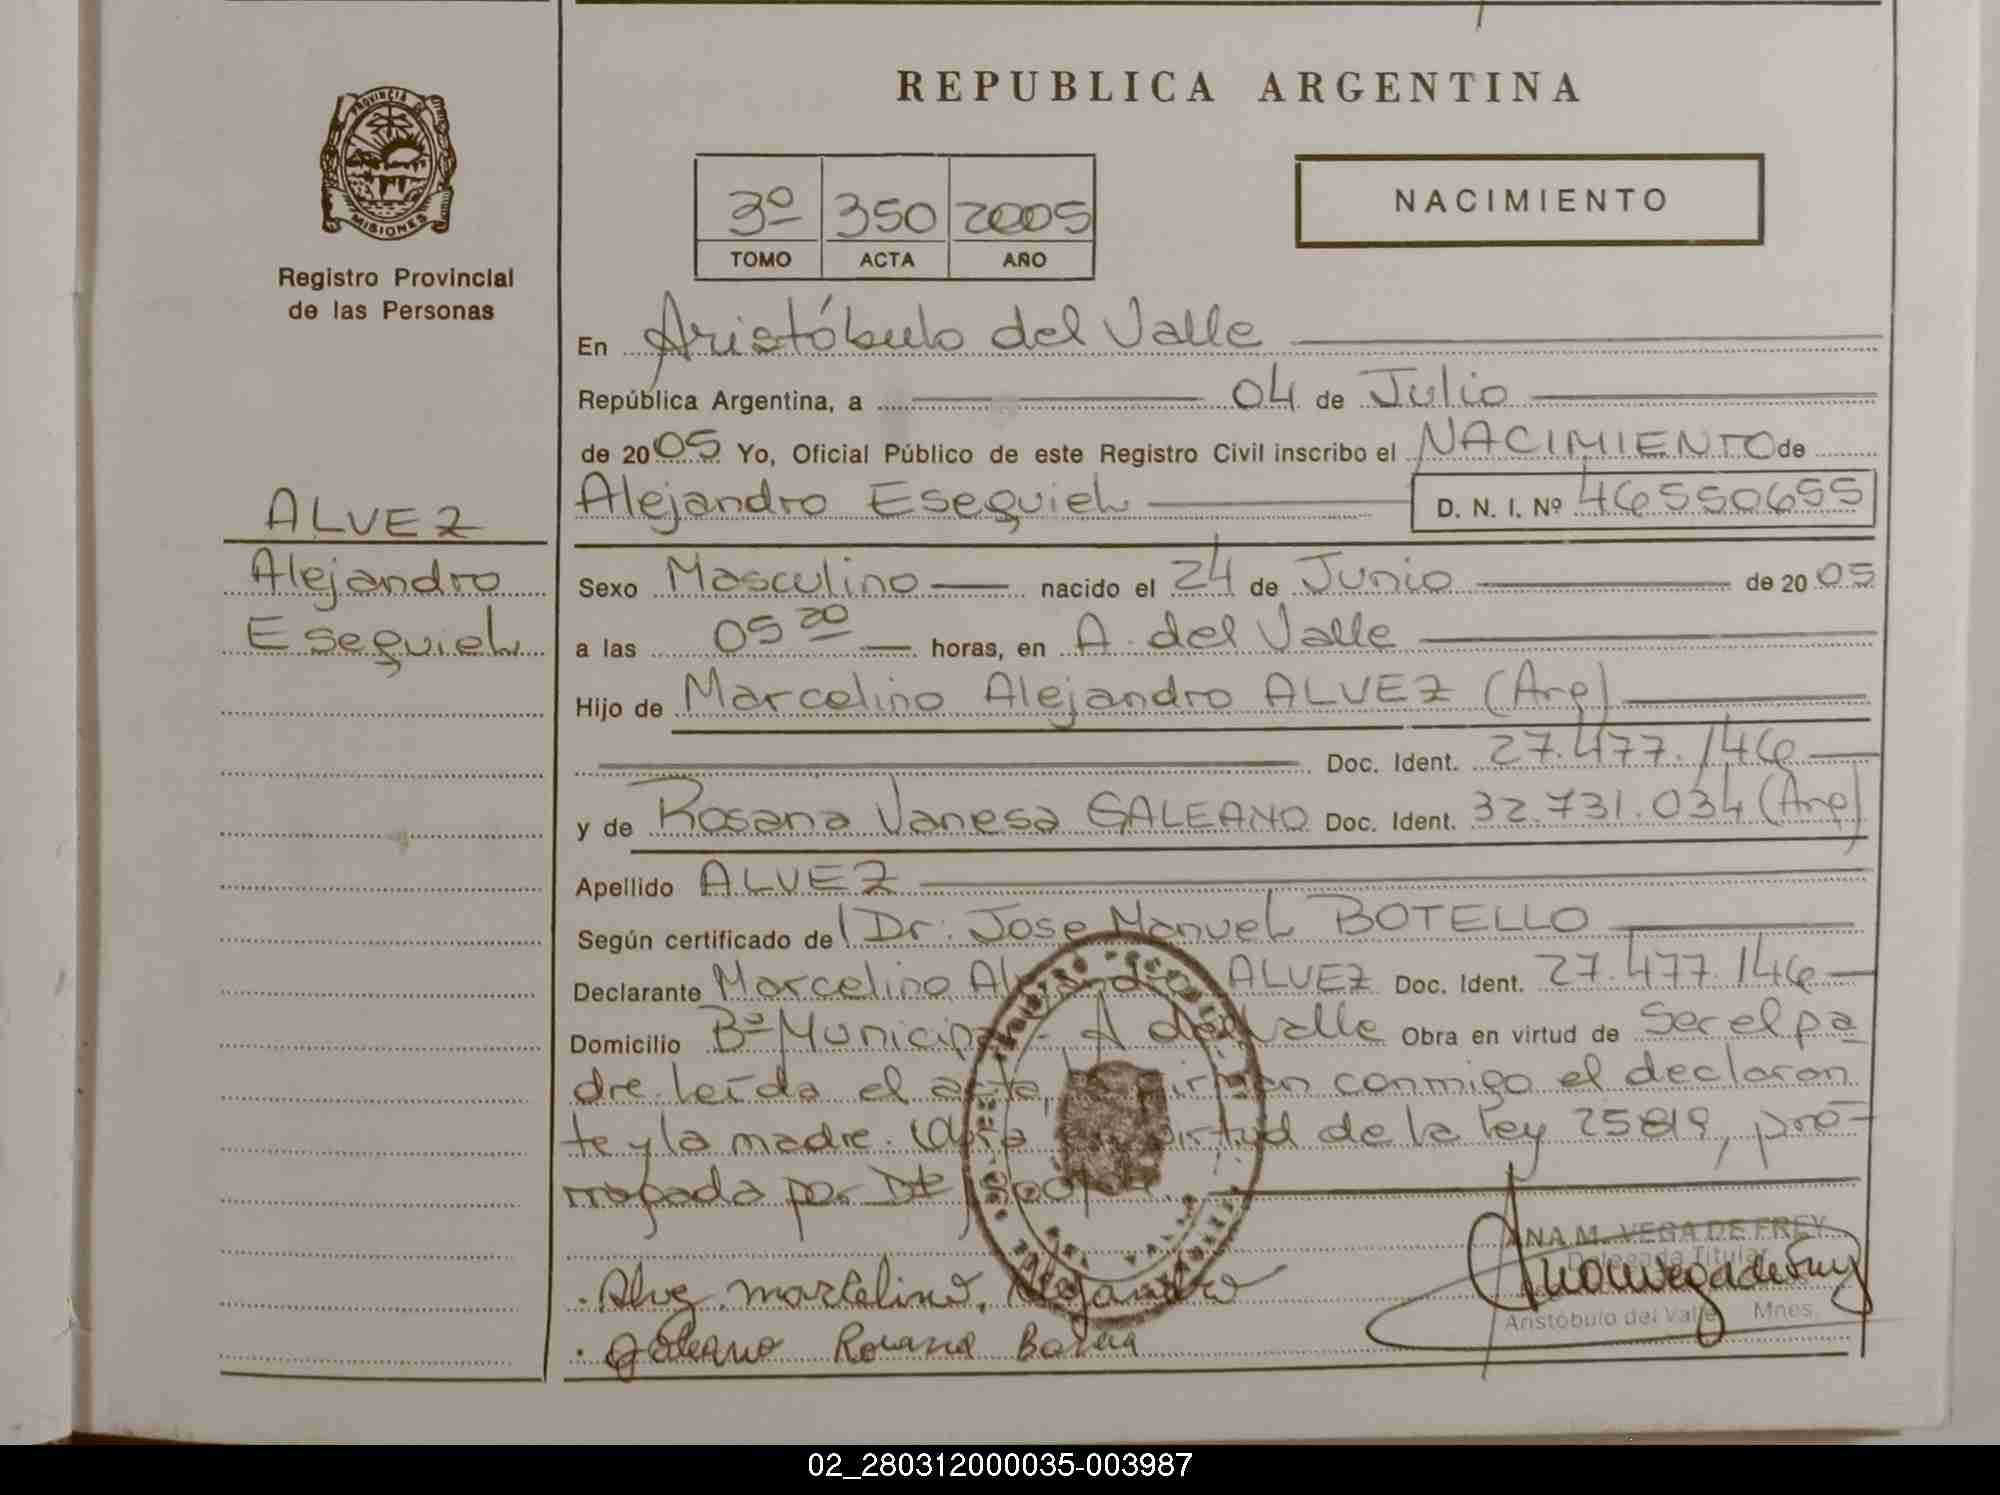 PROVINCIA DE
MISIONES
Registro Provincial
de las Personas
ALVEZ
Alejandro
Esequiel
REPUBLICA ARGENTINA
3º 350 2005
TOMO ACTA AÑO
NACIMIENTO
En Aristóbulo del Valle
República Argentina, a 04 de Julio
de 2005 Yo, Oficial Público de este Registro Civil inscribo el NACIMIENTO de
Alejandro Esequiel D. N. I. Nº 46550655
Sexo Masculino nacido el 24 de Junio de 2005
a las 05 20 horas, en A. del Valle
Hijo de Marcelino Alejandro ALVEZ (Arg)
Doc. Ident. 27.477.146
y de Rosana Vanesa GALEANO Doc. Ident. 32.731.034 (Arg)
Apellido ALVEZ
Según certificado del Dr. Jose Manuel BOTELLO
Declarante Marcelino Alejandro ALVEZ Doc. Ident. 27.477.146
Domicilio Bº Municipal - A del Valle Obra en virtud de Ser el pa
dre. Leída el acta, la firman conmigo el declaran
te y la madre. Obra en virtud de la ley 25819, pro-
rrogada por
Alvez Marcelino, Alejandro
Galeano Rosana
ANA M. VEGA DE FREY
Delegada Titular
Aristóbulo del Valle Mnes.
02_280312000035-003987